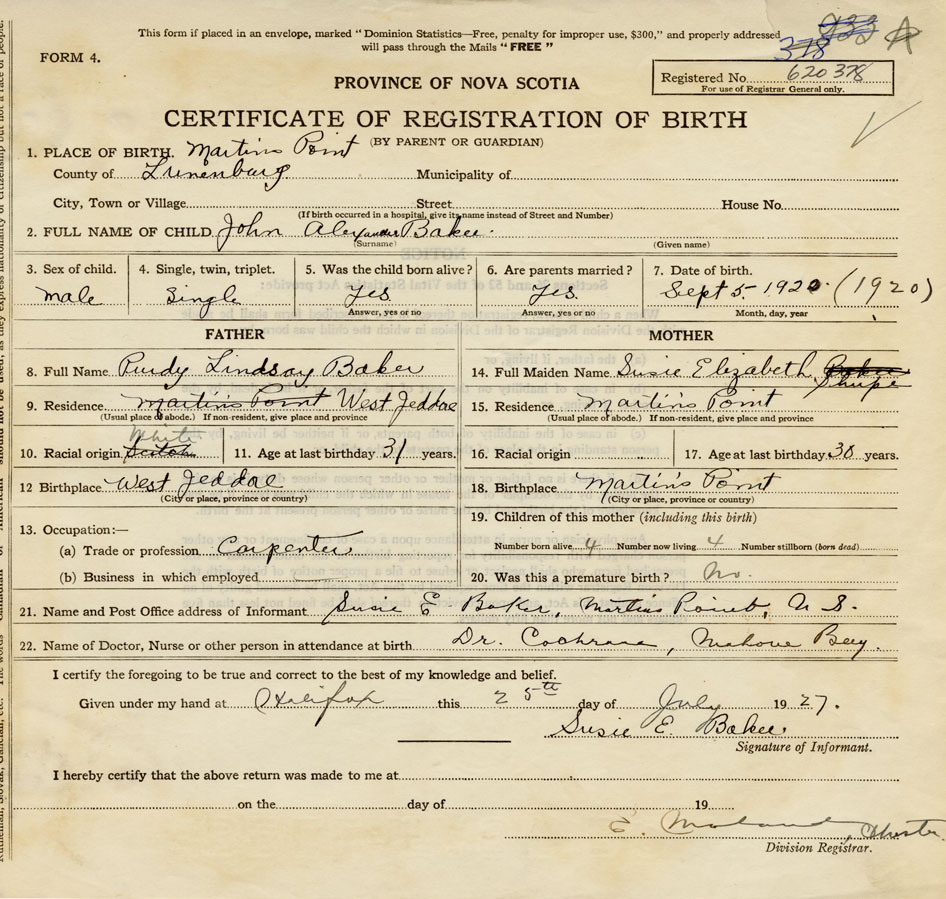 This form if placed in an envelope, marked "Dominion Statistics—Free, penalty for improper use, $300," and properly addressed
will pass through the Mails "FREE"
933 A
378
FORM 4.
PROVINCE OF NOVA SCOTIA
Registered No. 620378
For use of Registrar General only.
CERTIFICATE OF REGISTRATION OF BIRTH
(BY PARENT OR GUARDIAN)
1. PLACE OF BIRTH. Martins Point
County of Lunenburg Municipality of
City, Town or Village Street House No.
(If birth occurred in a hospital, give its name instead of Street and Number)
2. FULL NAME OF CHILD John Alexander Baker.
(Surname) (Given name)
3. Sex of child. 4. Single, twin, triplet. 5. Was the child born alive? 6. Are parents married? 7. Date of birth.
male Single Yes. Yes. Sept 5. 1920. (1920)
Answer, yes or no Answer, yes or no Month, day, year
FATHER MOTHER
8. Full Name Purdy Lindsay Baker 14. Full Maiden Name Susie Elizabeth Baker
9. Residence Martin's Point West Jeddae 15. Residence Martin's Point
(Usual place of abode.) If non-resident, give place and province (Usual place of abode.) If non-resident, give place and province
White
10. Racial origin Scotch 11. Age at last birthday 31 years. 16. Racial origin 17. Age at last birthday 30 years.
12 Birthplace West Jeddae 18. Birthplace Martin's Point
(City or place, province or country) (City or place, province or country)
13. Occupation:— 19. Children of this mother (including this birth)
(a) Trade or profession Carpenter Number born alive 4 Number now living 4 Number stillborn (born dead)
(b) Business in which employed 20. Was this a premature birth? No.
21. Name and Post Office address of Informant Susie E Baker, Martins Point, N S.
22. Name of Doctor, Nurse or other person in attendance at birth Dr. Cochrane, Mahone Bay.
I certify the foregoing to be true and correct to the best of my knowledge and belief.
Given under my hand at Halifax this 25th day of July 1927.
Susie E. Baker
Signature of Informant.
I hereby certify that the above return was made to me at
on the day of 19
E. Chester
Division Registrar.